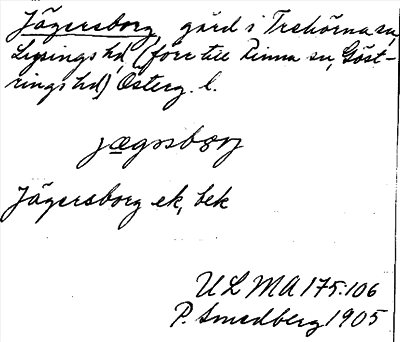 Jägersborg, gård i Trehörna sn,
Lysings hd, (förr till Rinna sn, Göst-
rings hd) Österg. l.
Jägersborg ek, bek
ULMA 175:106
P. Smedberg 1905